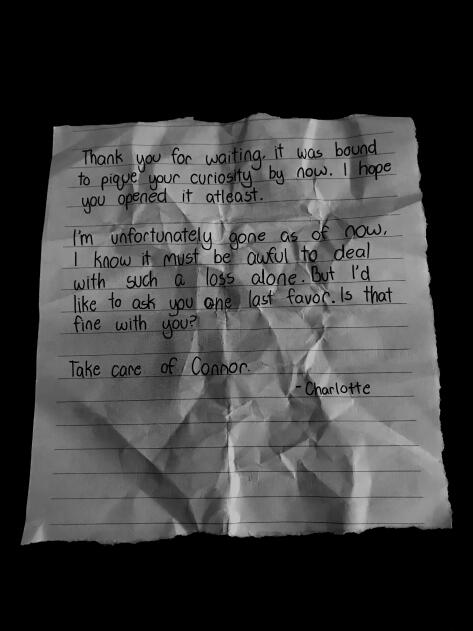 Thank you for waiting, it was bound
to pique your curiosity by now. I hope
you opened it atleast.
I'm unfortunately gone as of now,
I know it must be awful to deal
with such a loss alone. But I'd
like to ask you one last favor. Is that
fine with you?
Take care of Connor.
- Charlotte